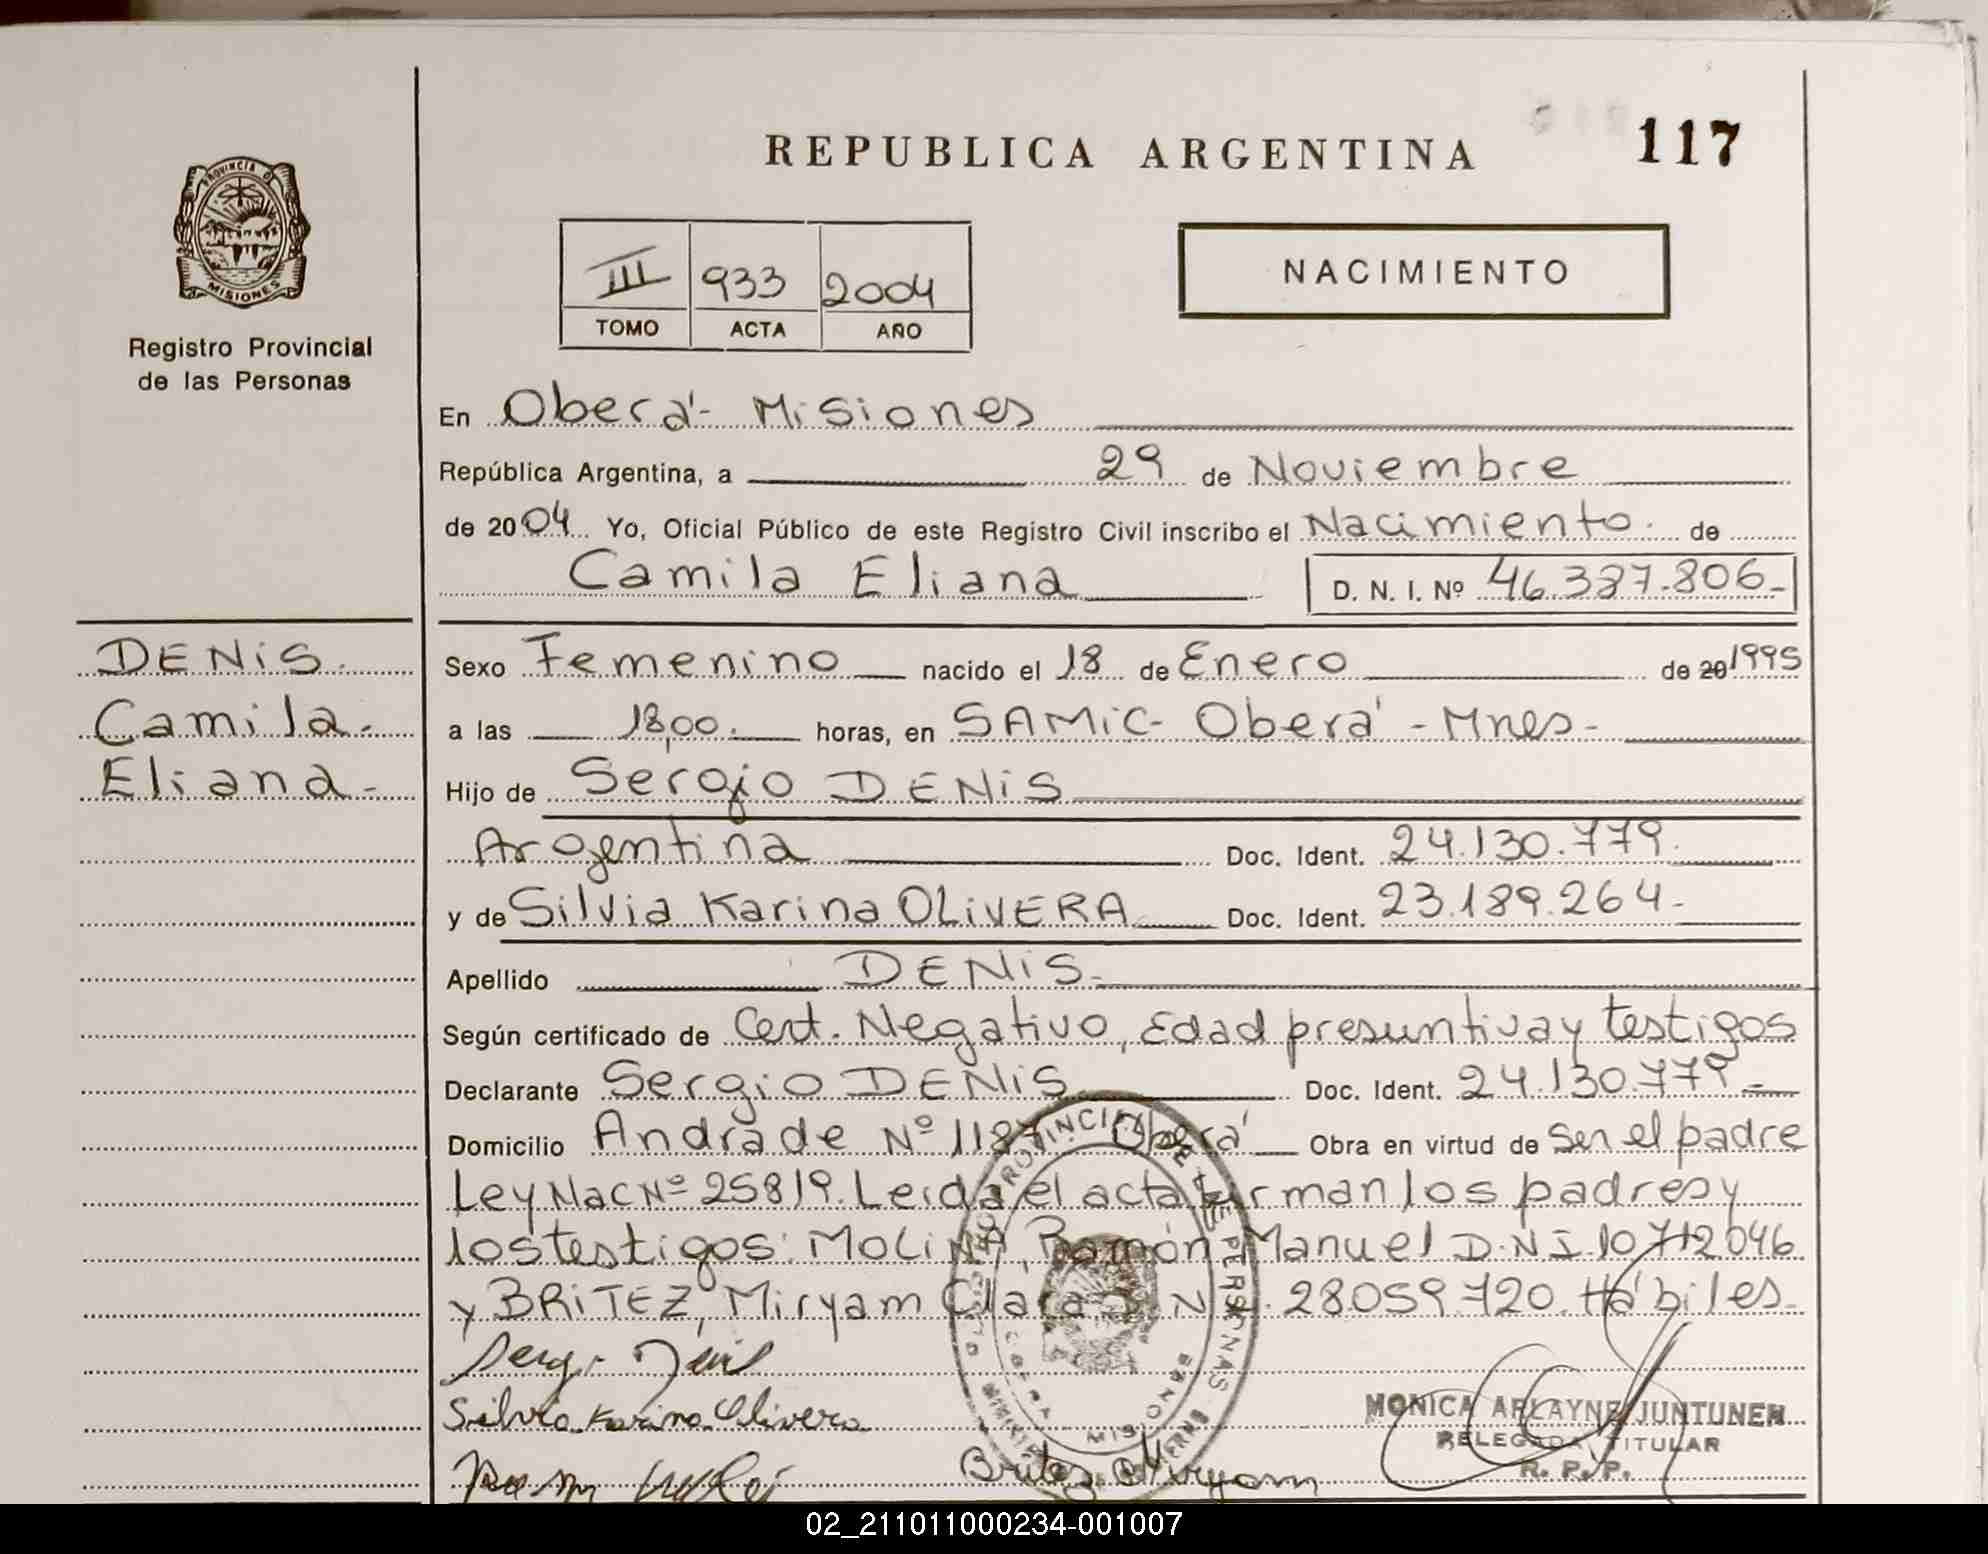 REPUBLICA ARGENTINA
117
PROVINCIA D
MISIONES
Registro Provincial
de las Personas
III 933 2004
TOMO ACTA AÑO
NACIMIENTO
En Oberá - Misiones
República Argentina, a 29 de Noviembre
de 2004 Yo, Oficial Público de este Registro Civil inscribo el Nacimiento. de
Camila Eliana D. N. I. Nº 46.387.806-
DENiS.
Camila.
Eliana-
Sexo Femenino nacido el 18 de Enero de 20 1995
a las 18,00. horas, en SAMiC- Oberá - Mnes-
Hijo de Sergio DENiS
Argentina Doc. Ident. 24.130.779.
y de Silvia Karina OLiVERA Doc. Ident. 23.189.264-
Apellido DENiS-
Según certificado de Cert. Negativo, Edad presuntiva y testigos
Declarante Sergio DENiS Doc. Ident. 24.130.779-
Domicilio Andrade Nº 1187 Oberá Obra en virtud de Ser el padre
Ley Nac Nº 25819. Leida el acta firman los padres y
los testigos: MOLiNA, Ramón Manuel D.N.I. 10712046
y BRiTEZ, Miryam Clara D.N.I. 28.059.720. Hábiles-
Silvia Karina Olivera
Britez Miryam
MONICA ARLAYNE JUNTUNEN
DELEGADA TITULAR
R. P. P.
02_211011000234-001007